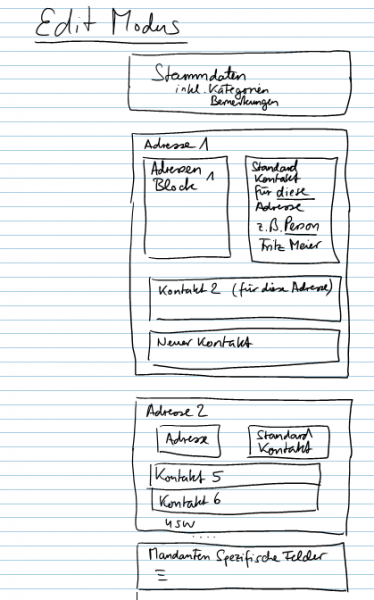 Edit Modus
Stammdaten
inkl. Kategorien
Bemerkungen
Adresse 1
Adressen
Block 1
Standard
Kontakt
für diese
Adresse
z.B. Person
Fritz Meier
Kontakt 2 (für diese Adresse)
Neuer Kontakt
Adresse 2
Adresse
Standard
Kontakt
Kontakt 5
Kontakt 6
usw
....
Mandanten Spezifische Felder